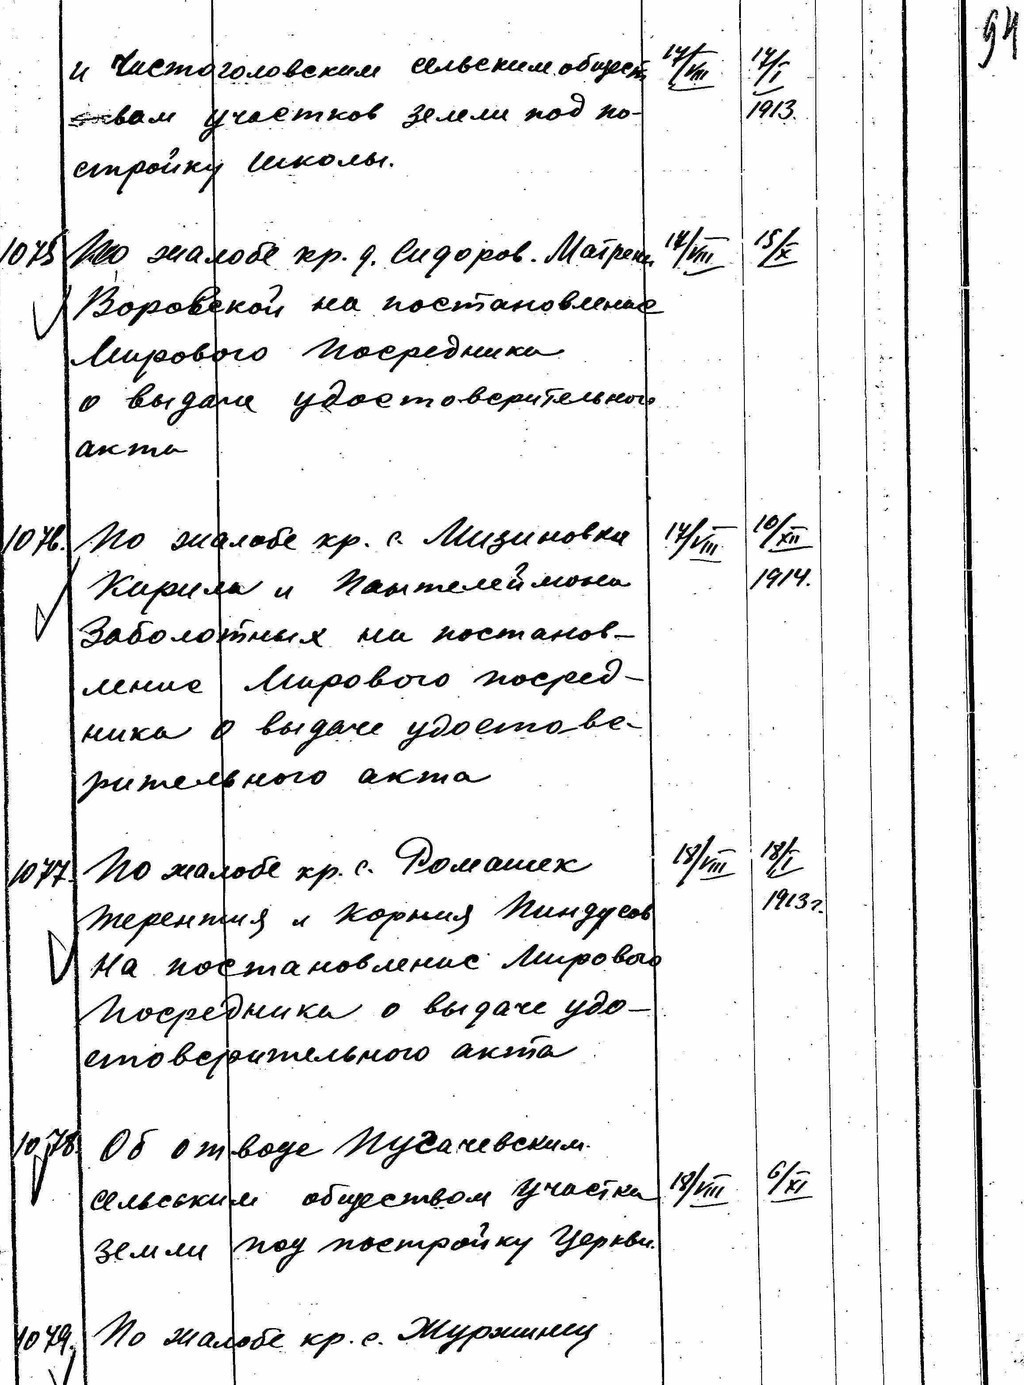 94
и Чистоголовским сельским общест 17/VIII 17/I
вам участков земли под по- 1913.
стройку школы.
1075 По жалобе кр. д. Сидоров. Матрены 17/VIII 15/X
Воровской на постановление
Мирового Посредника
о выдаче удостоверительного
акта
1076. По жалобе кр. с. Мизиновки 17/VIII 10/XII
Кирила и Пантелеймона 1914.
Заболотных на постанов-
ление Мирового посред-
ника о выдаче удостове-
рительного акта
1077. По жалобе кр. с. Ромашек 18/VIII 18/I
Терентия и Корния Пиндусов 1913 г.
на постановление Мирового
Посредника о выдаче удо-
стоверительного акта
1078. Об отводе Пугачевским
сельським обществом участка 18/VIII 6/XI
земли под постройку Церкви.
1079. По жалобе кр. с. Журжинцы